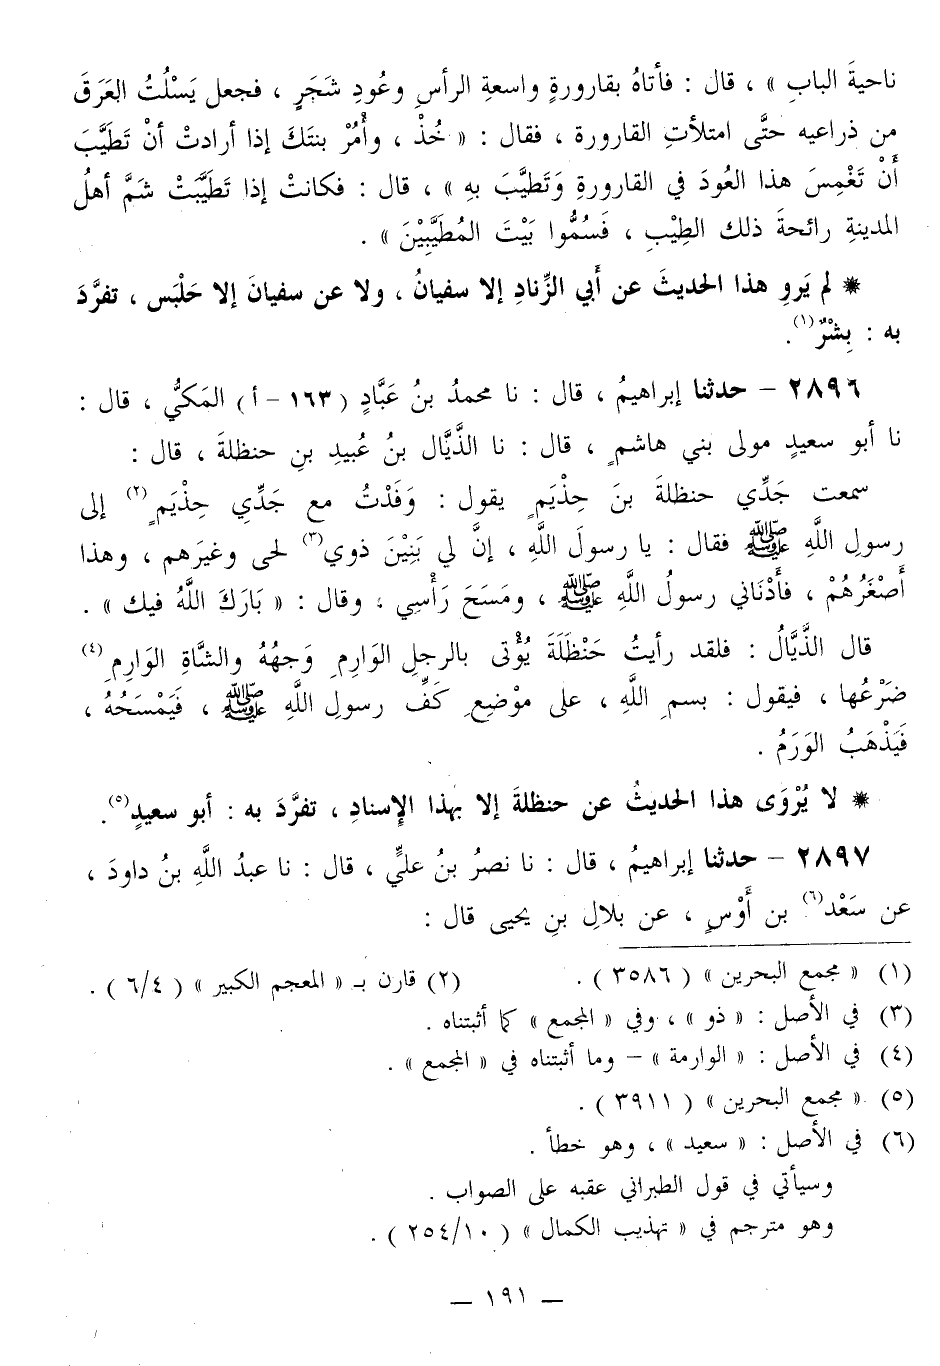 ناحيةَ البابِ » ، قال : فأتاهُ بقارورةٍ واسعةِ الرأسِ وعُودِ شَجَرٍ ، فجعل يَسْلُتُ العَرَقَ
من ذراعيه حتَّى امتلأتِ القارورة ، فقال : « خُذْ ، وأْمُرْ بنتَكَ إذا أرادتْ أنْ تَطَيَّبَ
أَنْ تَغْمِسَ هذا العُودَ في القارورةِ وَتَطيَّبَ بهِ » ، قال : فكانتْ إذا تَطَيَّبَتْ شَمَّ أهلُ
المدينةِ رائحةَ ذلك الطِيْبِ ، فَسُمُّوا بَيْتَ المُطَيَّبِيْنَ » .
* لم يَروِ هذا الحديثَ عن أبي الزِّنادِ إلا سفيانُ ، ولا عن سفيانَ إلا حَلْبَس ، تفرَّدَ
به : بِشْرٌ(١).
٢٨٩٦ – حدثنا إبراهيمُ ، قال : نا محمدُ بنُ عَبَّادٍ (١٦٣ – أ) المَكيُّ ، قال :
نا أبو سعيدٍ مولى بني هاشمٍ ، قال : نا الذَّيَّال بنُ عُبيدِ بنِ حنظلةَ ، قال :
سمعت جَدِّي حنظلةَ بنَ حِذْيَمٍ يقول : وَفَدْتُ مع جَدِّي حِذْيَمٍ(٢) إلى
رسولِ اللَّهِ ﷺ فقال : يا رسولَ اللَّهِ ، إنَّ لي بَنِيْنَ ذوي(٣) لحى وغيرَهم ، وهذا
أَصْغَرُهُمْ ، فأَدْنَاني رسولُ اللَّهِ ﷺ ، ومَسَحَ رَأْسِي ، وقال : « بَارَكَ اللَّهُ فيك » .
قال الذَّيَّالُ : فلقد رأيتُ حَنْظَلَةَ يُؤْتى بالرجلِ الوَارِمِ وَجههُ والشَّاةِ الوَارِمِ(٤)
ضَرْعُها ، فيقول : بسمِ اللَّهِ ، على موْضِعِ كَفِّ رسولِ اللَّهِ ﷺ ، فَيَمْسَحُهُ ،
فَيَذْهَبُ الوَرَمُ .
* لا يُرْوَى هذا الحديثُ عن حنظلةَ إلا بهذا الإِسنادِ ، تفرَّدَ به : أبو سعيدٍ(٥).
٢٨٩٧ – حدثنا إبراهيمُ ، قال : نا نصرُ بنُ عليٍّ ، قال : نا عبدُ اللَّهِ بنُ داودَ ،
عن سَعْد(٦) بن أَوْسٍ ، عن بلالِ بنِ يحيى قال :
(١) « مجمع البحرين » ( ٣٥٨٦ ) . (٢) قارن بـ « المعجم الكبير » ( ٦/٤ ) .
(٣) في الأصل : « ذو » ، وفي « المجمع » كما أثبتناه .
(٤) في الأصل : « الوارمة » – وما أثبتناه في « المجمع » .
(٥) « مجمع البحرين » ( ٣٩١١ ) .
(٦) في الأصل : « سعيد » ، وهو خطأ .
وسيأتي في قول الطبراني عقبه على الصواب .
وهو مترجم في « تهذيب الكمال » ( ٢٥٤/١٠ ) .
– ١٩١ –